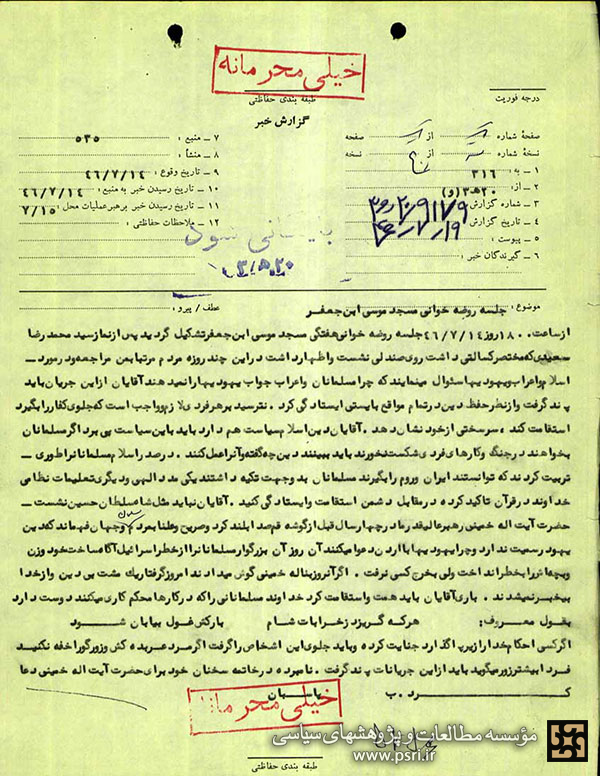 خیلی محرمانه
طبقه بندی حفاظتی
درجه فوریت
گزارش خبر
صفحه شماره از صفحه
نسخه شماره از نسخه
۱ - به : ۳۱۶
۲ - از : ۲۰ه۳ (و)
۳ - شماره گزارش
۴ - تاریخ گزارش
۵ - پیوست :
۶ - گیرندگان خبر :
۷ - منبع : ۵۳۵
۸ - منشأ :
۹ - تاریخ وقوع : ۴۶/۷/۱۴
۱۰ - تاریخ رسیدن خبر به منبع : ۴۶/۷/۱۴
۱۱ - تاریخ رسیدن خبر برهبر عملیات محل : ۷/۱۵
۱۲ - ملاحظات حفاظتی :
بایگانی شود
موضوع : جلسه روضه خوانی مسجد موسی ابن جعفر
عطف / پیرو :
از ساعت ۱۸۰۰ روز ۴۶/۷/۱۴ جلسه روضه خوانی هفتگی مسجد موسی ابن جعفر تشکیل گردید پس از نماز سید محمد رضا
سعیدی که مختصر کسالتی داشت روی صندلی نشست و اظهار داشت در این چند روزه مردم مرتبا بمن مراجعه و در مورد
اسلام و اعراب و یهود یها سئوال مینمایند که چرا مسلمانان و اعراب جواب یهود یها را نمید هند آقایان از این جریان باید
پند گرفت و از نظر حفظ دین در تمام مواقع بایستی ایستادگی کرد . نترسید بر هر فردی لازم و واجب است که جلوی کفار را بگیرد
استقامت کند ، سرسختی از خود نشان دهد . آقایان دین اسلام سیاست هم دارد باید با این سیاست پی برد اگر مسلمانان
بخواهند در جنگ و کارهای فردی شکست نخورند باید ببینند دین چه گفته و آنرا عمل کنند . در صدر اسلام مسلمانرا طوری
تربیت کردند که توانستند ایران و روم را بگیرند مسلمانان بدو جهت تکیه داشتند یکی مدد الهی و دیگری تعلیمات نظامی
خداوند در قرآن تاکید کرده در مقابل دشمن استقامت و ایستادگی کنید . آقایان نباید مثل شاه سلطان حسین نشست
حضرت آیت اله خمینی رهبر عالیقدر ما در چهار سال قبل از گوشه قم صدا بلند کرد و صریح و علنا بمردم و جهان فهماند که دین
یهود رسمیت ندارد و چرا یهود یها با اردن دعوا میکنند آن روز آن بزرگوار مسلمانان را از خطر اسرائیل آگاه ساخت خود و زن
و بچه اش را بخطر انداخت ولی بخرج کسی نرفت . اگر آنروز بناله خمینی گوش میدادند امروز گرفتار یک مشت بی دین و از خدا
بیخبر نمیشدند . باری آقایان باید همت و استقامت کرد خداوند مسلمانانی را که در کارها محکم کاری میکنند دوست دارد
بقول معروف : هر که گریزد زخرابات شام بارکش غول بیابان شود
اگر کسی احکام خدا را زیر پا گذارد جنایت کرده و باید جلوی این اشخاص را گرفت اگر مرد عربده کش و زورگو را خفه نکنید
فردا بیشتر زور میگوید باید از این جریانات پند گرفت . نامبرده در خاتمه سخنان خود برای حضرت آیت اله خمینی دعا
کرد . ب پاسبان
خیلی محرمانه
طبقه بندی حفاظتی
مؤسسه مطالعات و پژوهشهای سیاسی
www.psri.ir